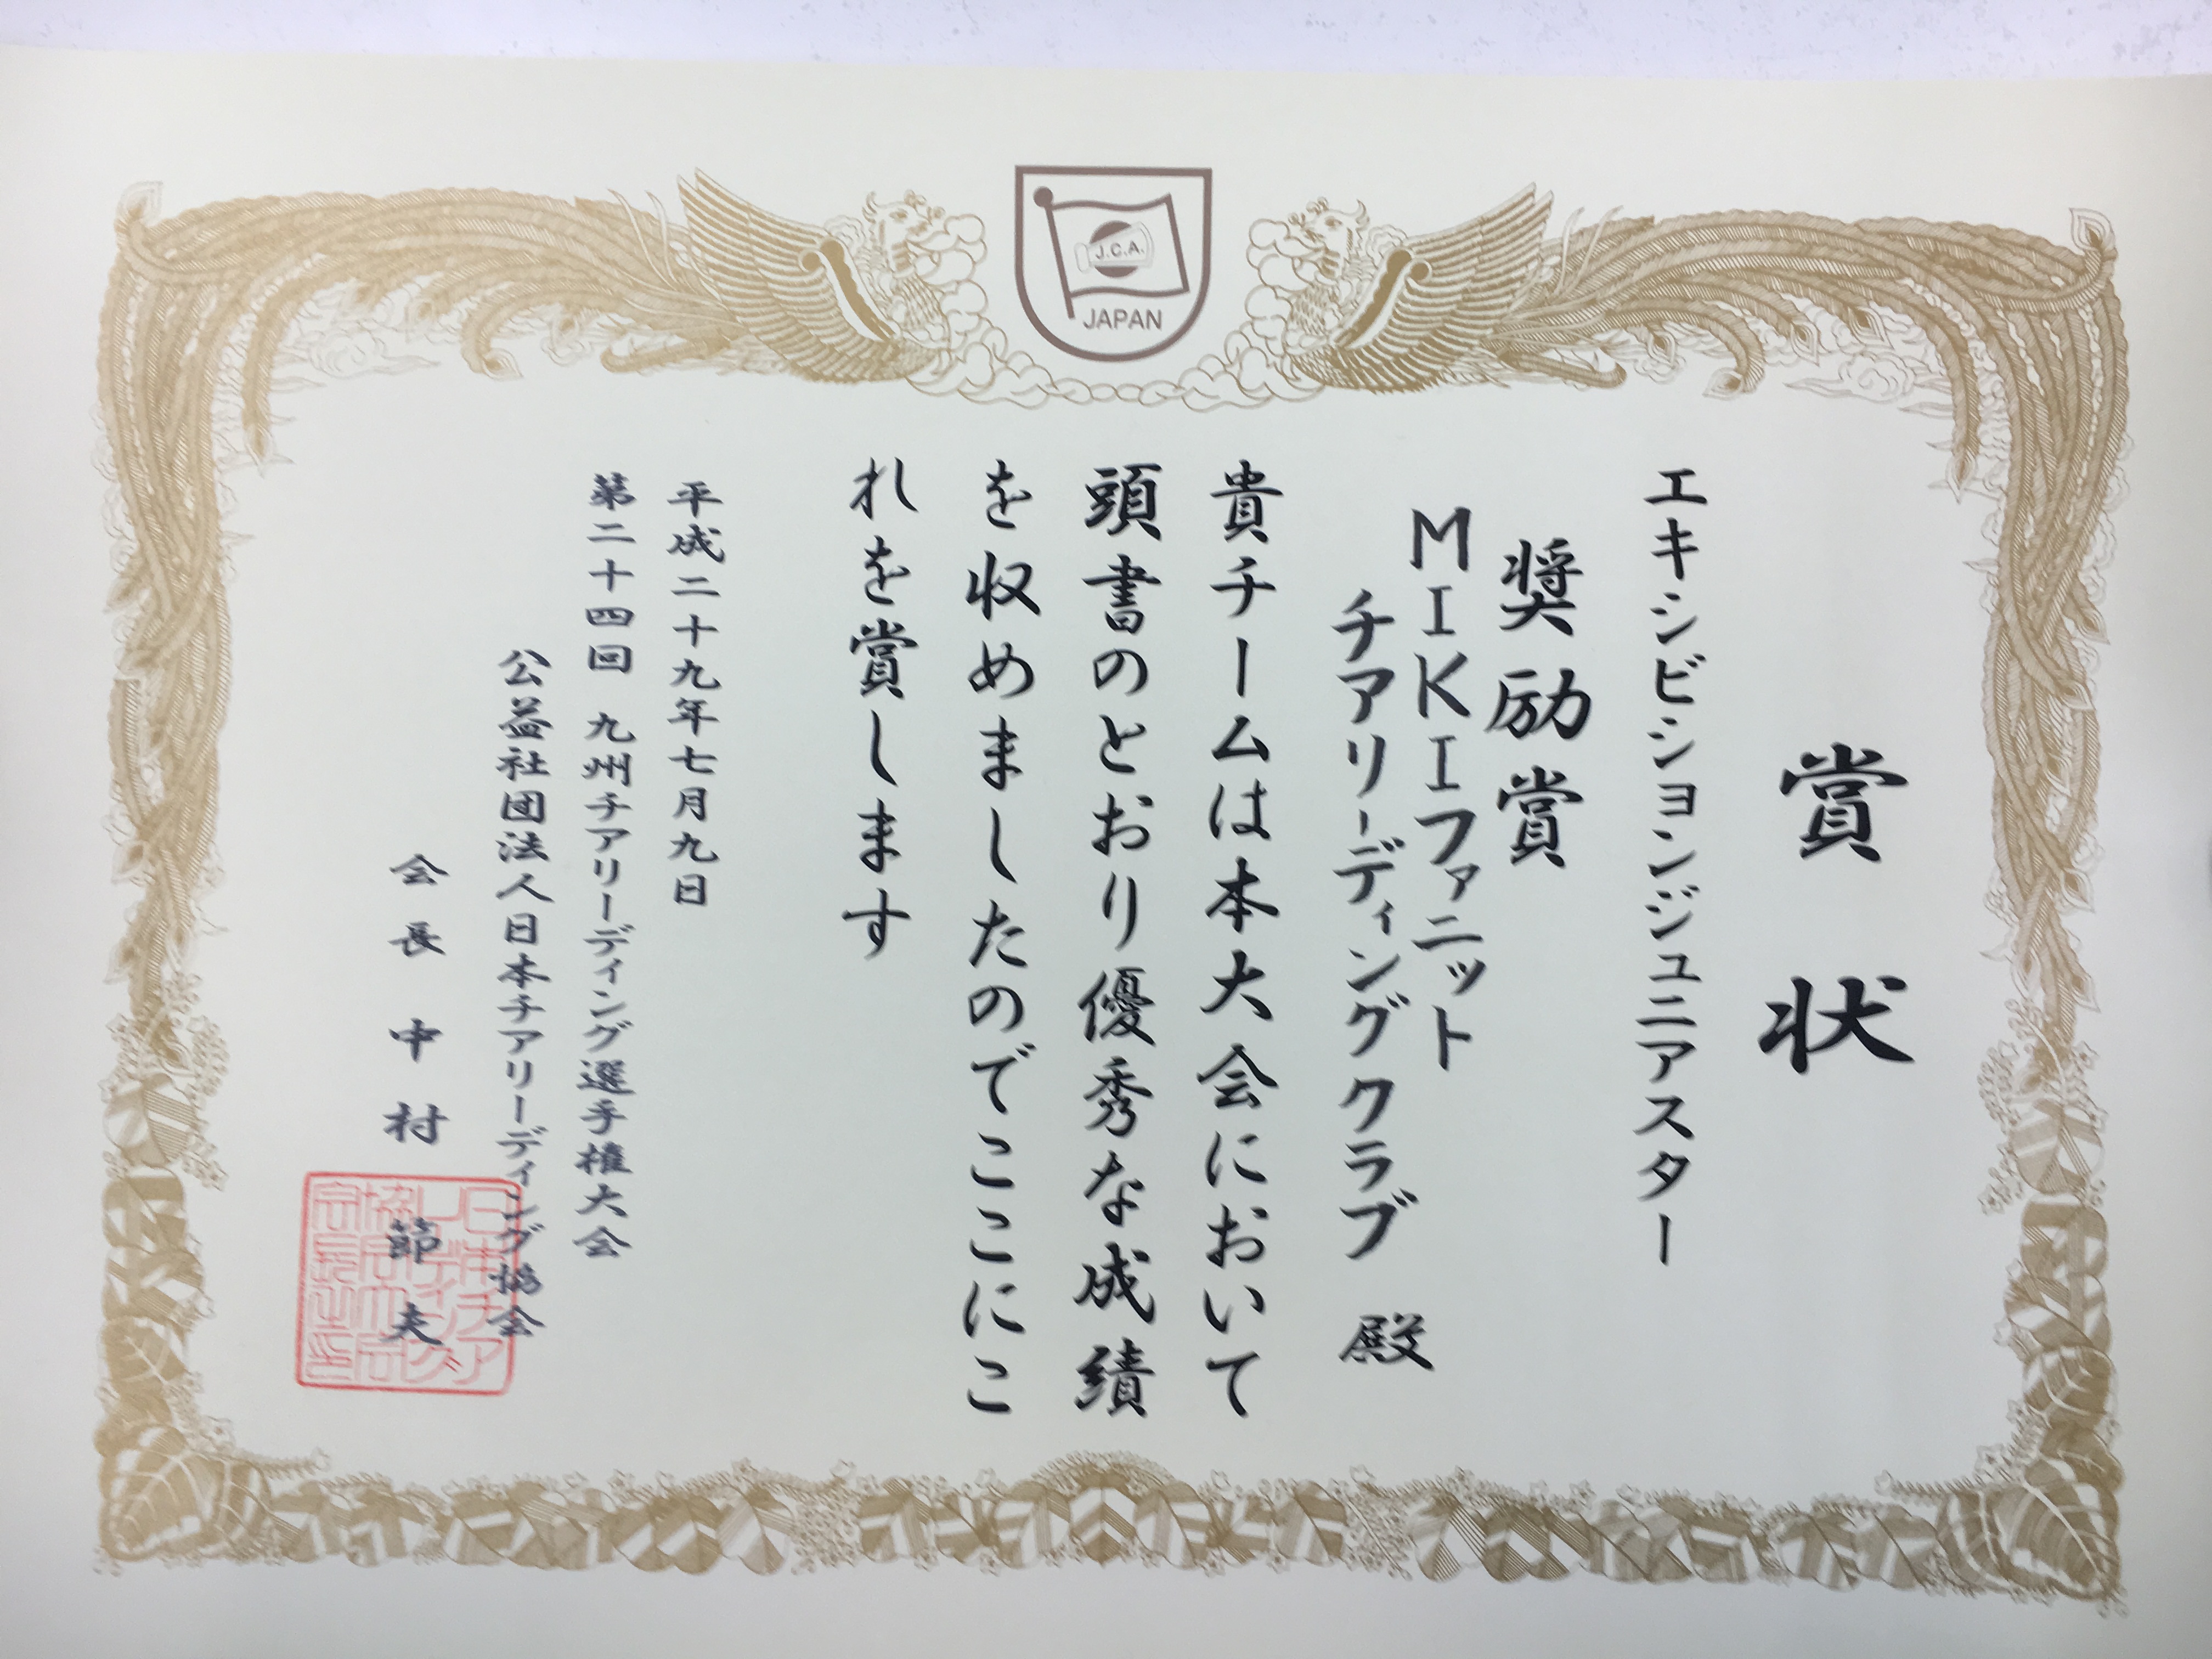 J.C.A.
JAPAN
賞状
エキシビションジュニアスター
奨励賞
MIKIファニット
チアリーディングクラブ 殿
貴チームは本大会において
頭書のとおり優秀な成績
を収めましたのでここにこ
れを賞します
平成二十九年七月九日
第二十四回 九州チアリーディング選手権大会
公益社団法人日本チアリーディング協会
会長 中村 節夫